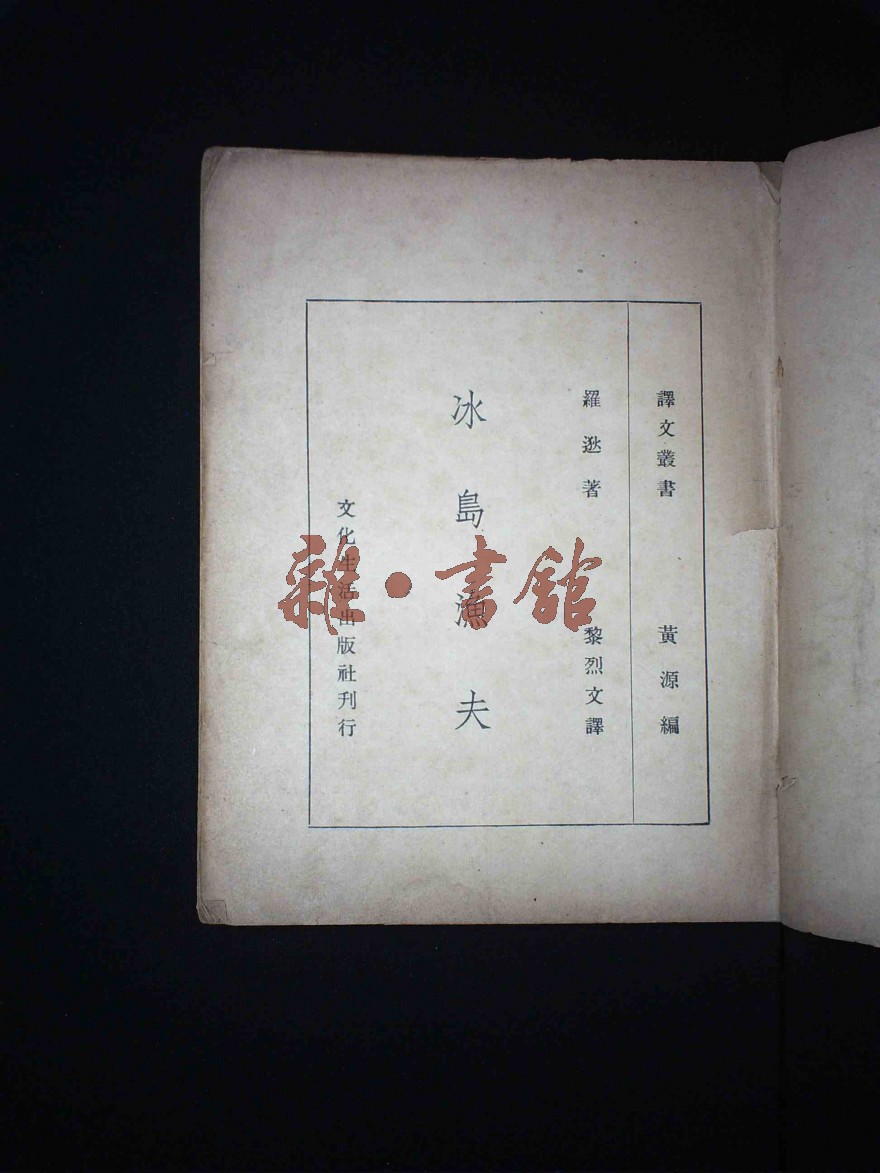 譯文叢書 黃源編
羅逖著 黎烈文譯
冰島漁夫
文化生活出版社刊行
雜·書館